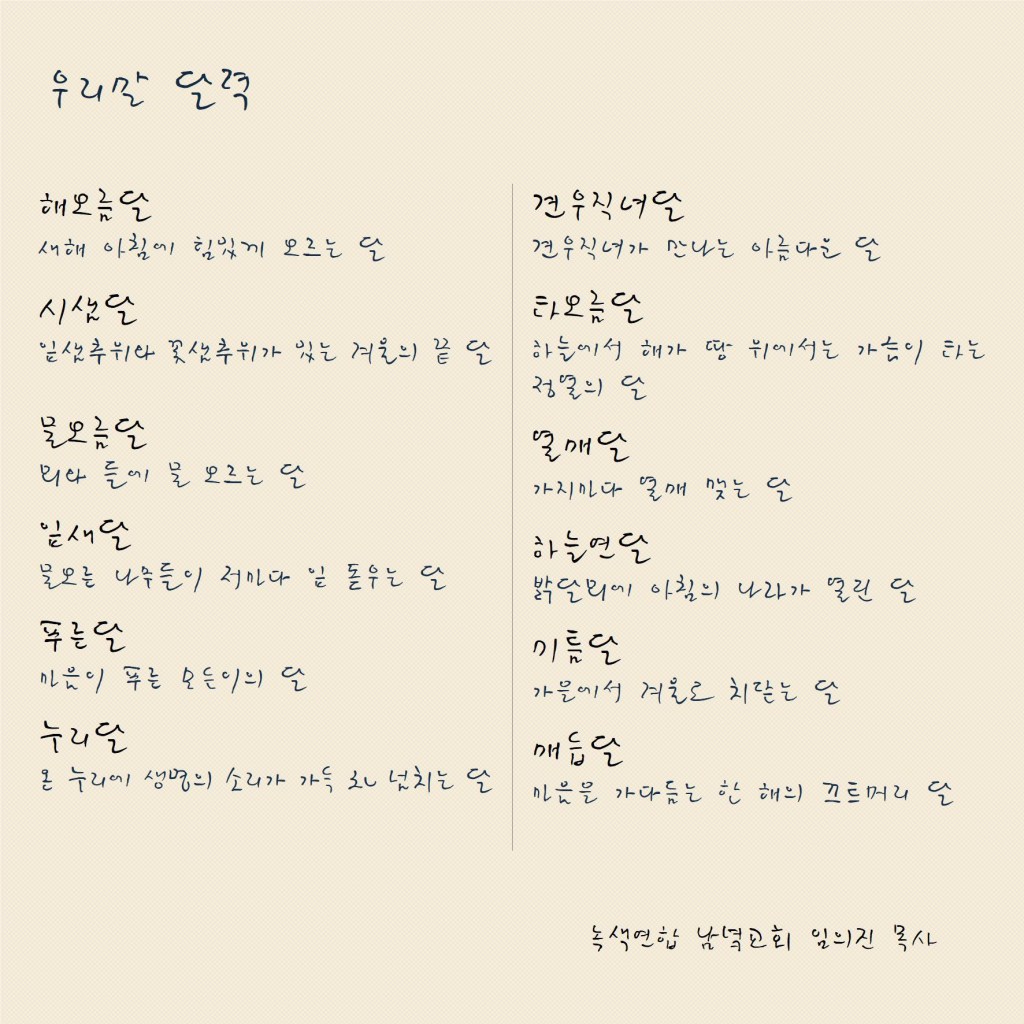 우리말 달력
해오름달
새해 아침에 힘있게 오르는 달
시샘달
잎샘추위와 꽃샘추위가 있는 겨울의 끝 달
물오름달
뫼와 들에 물 오르는 달
잎새달
물오른 나무들이 저마다 잎 돋우는 달
푸른달
마음이 푸른 모든이의 달
누리달
온 누리에 생명의 소리가 가득 차 넘치는 달
견우직녀달
견우직녀가 만나는 아름다운 달
타오름달
하늘에서 해가 땅 위에서는 가슴이 타는
정열의 달
열매달
가지마다 열매 맺는 달
하늘연달
밝달뫼에 아침의 나라가 열린 달
미틈달
가을에서 겨울로 치닫는 달
매듭달
마음을 가다듬는 한 해의 끄트머리 달
녹색연합 남녘교회 임의진 목사